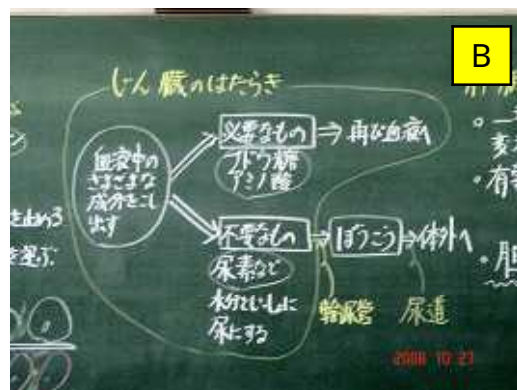 B
じん臓のはたらき
血液中の
さまざまな
成分をこし
出す
必要なもの ⇒ 再び血液へ
ブドウ糖
アミノ酸
不要なもの ⇒ ぼうこう ⇒ 体外へ
尿素など
水分といっしょに
尿にする
輸尿管
尿道
を止める
を運ぶ
・有害
・胆
2008 10 27